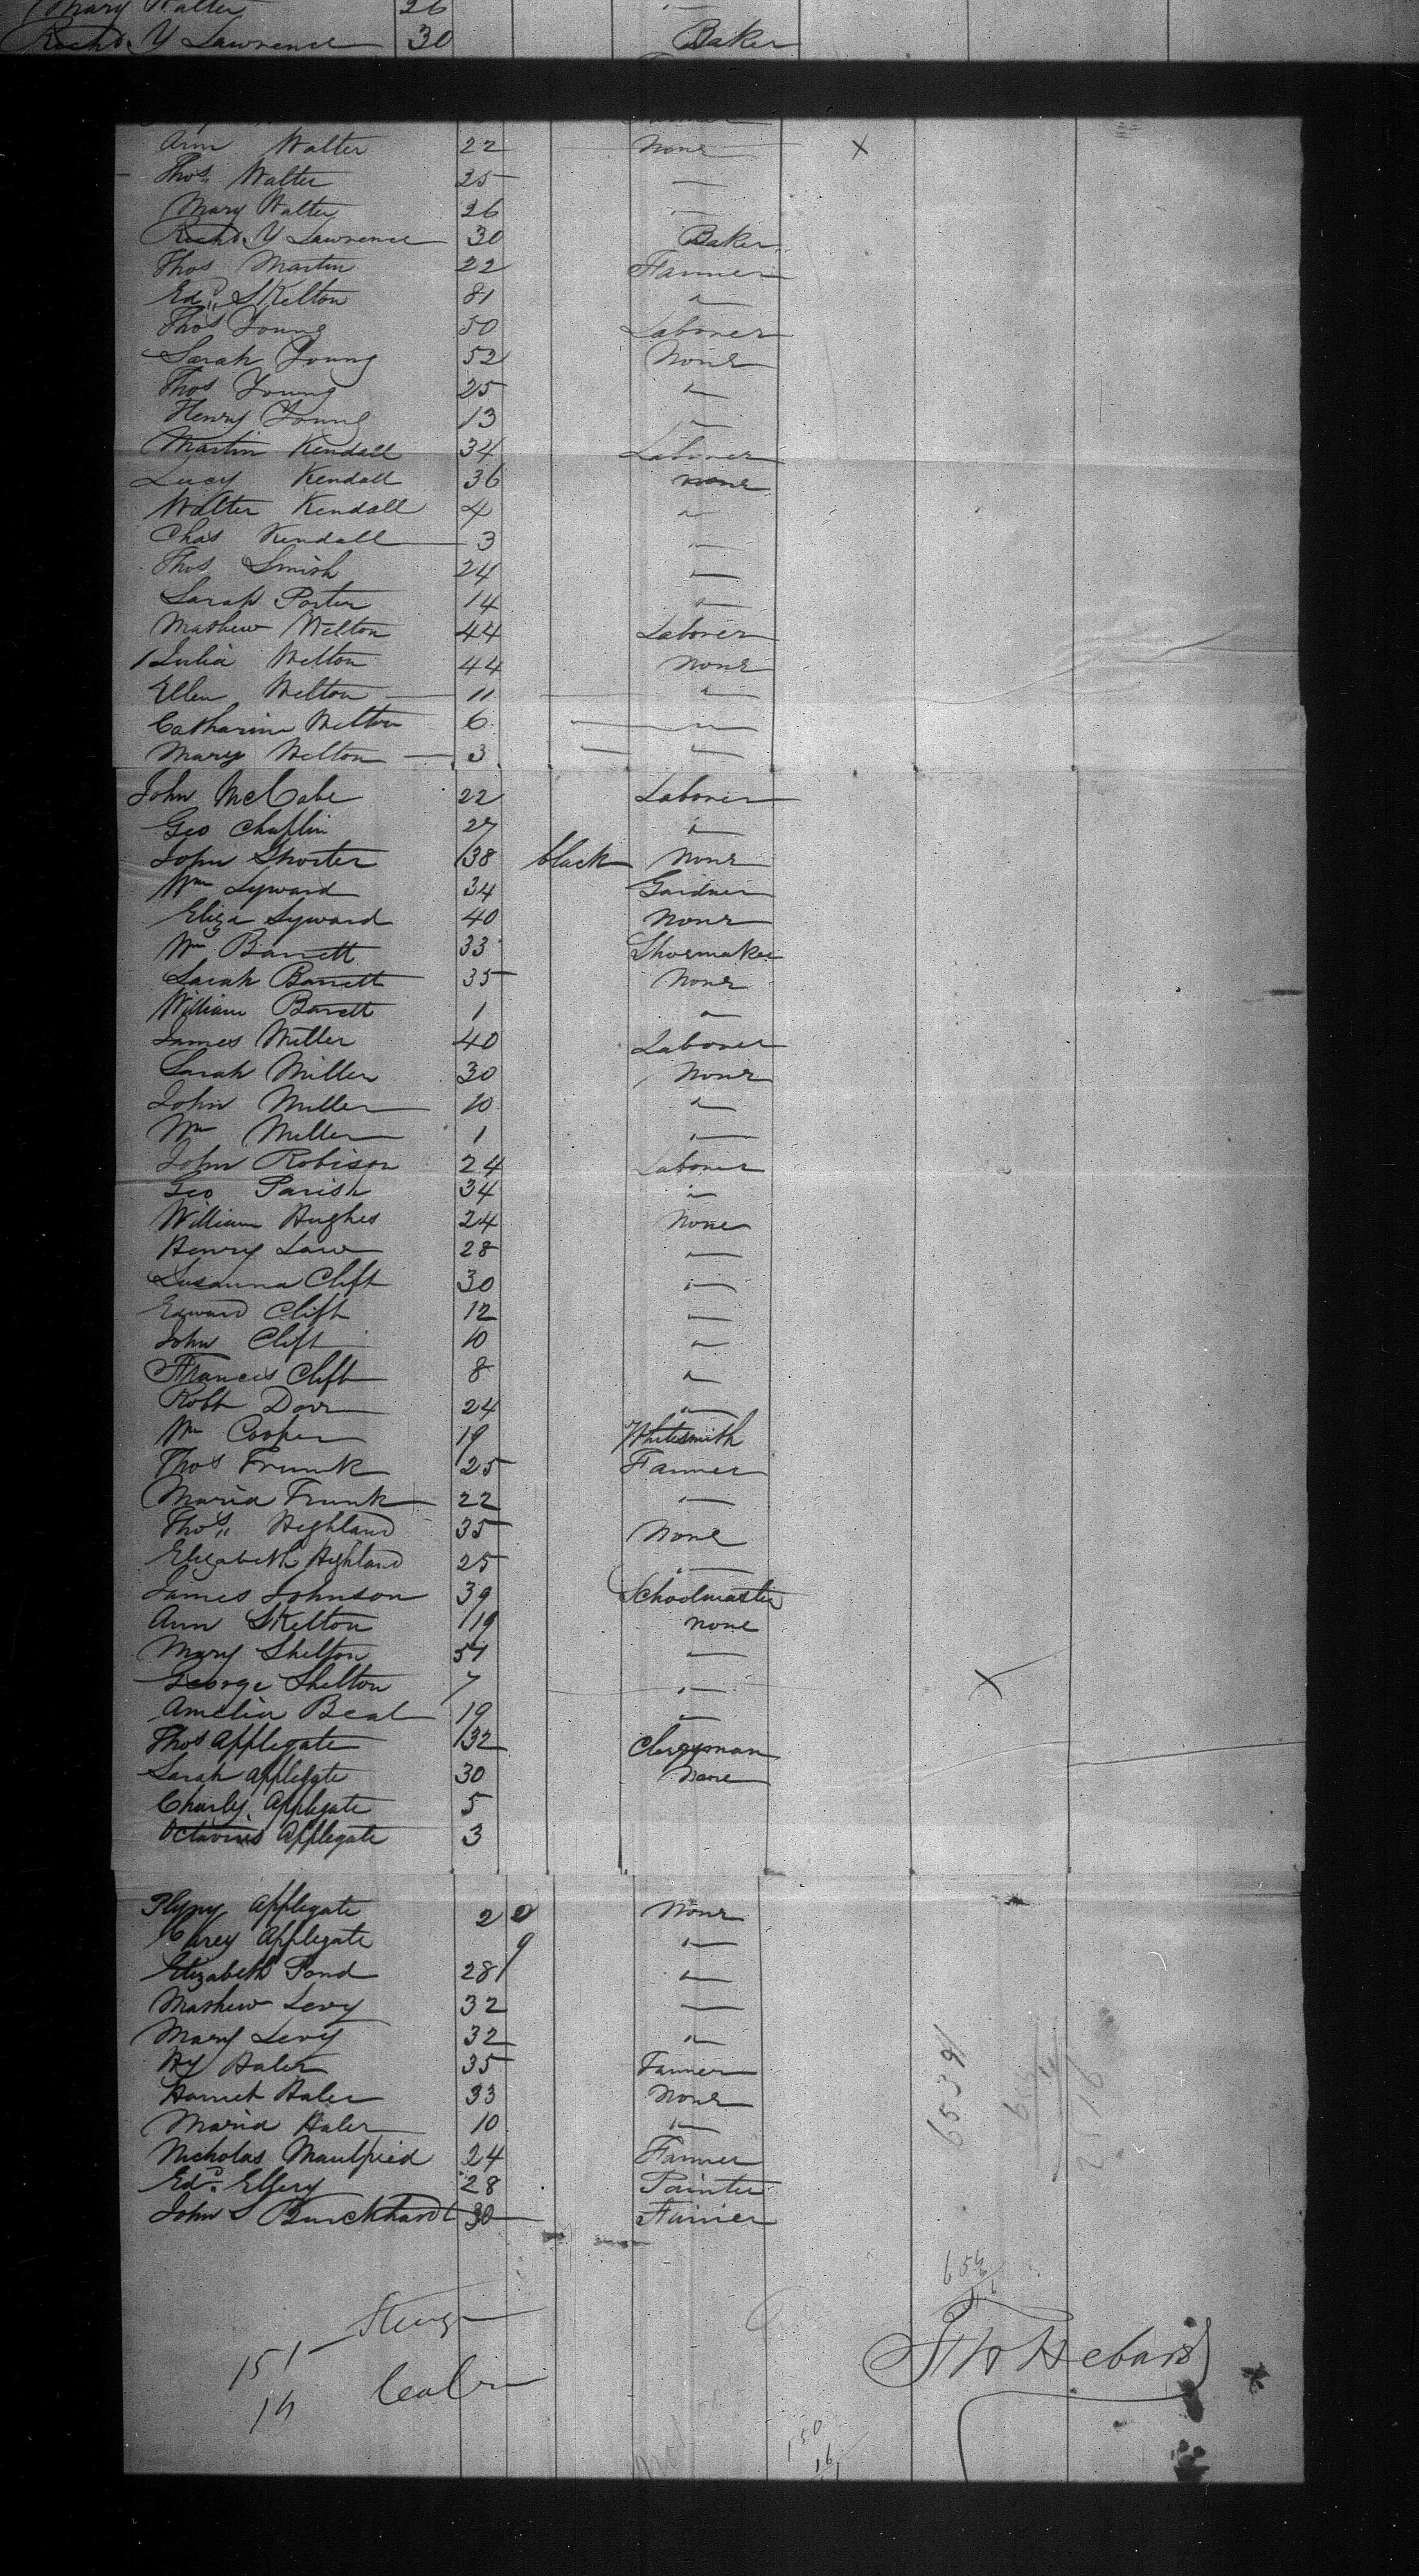 Mary Walter 26 "
Richd. Y Lawrence 30 Baker
Ann Walter 22 None X
Thos. Walter 25 "
Mary Walter 26 "
Richd. Y Lawrence 30 Baker
Thos Martin 22 Farmer
Edd. Skelton 81 "
Thos Young 50 Laborer
Sarah Young 52 None
Thos Young 25 "
Henry Young 13 "
Martin Kendall 34 Laborer
Lucy Kendall 36 none
Walter Kendall 4 "
Chas Kendall 3 "
Thos Smith 24 "
Sarah Porter 14 "
Mathew Welton 44 Laborer
Julia Welton 44 None
Ellen Welton 11 "
Catharine Welton 6 "
Mary Welton 3 "
John McCabe 22 Laborer
Geo Chaplin 27 "
John Shorter 38 black None
Wm Syward 34 Gardner
Eliza Syward 40 None
Wm Barrett 33 Shoemaker
Sarah Barrett 35 None
William Barrett 1 "
James Miller 40 Laborer
Sarah Miller 30 None
John Miller 10 "
Wm Miller 1 "
John Robison 24 Laborer
Geo Parish 34 "
William Hughes 24 None
Henry Law 28 "
Susanna Clift 30 "
Edward Clift 12 "
John Clift 10 "
Francis Clift 8 "
Robt Dorr 24 "
Wm Cooper 19 Whitesmith
Thos Frunk 25 Farmer
Maria Frunk 22 "
Thos. Highland 35 None
Elizabeth Highland 25 "
James Johnson 39 Schoolmaster
Ann Skelton 19 none
Mary Shelton 54 "
George Shelton 7 " X
Amelia Beal 19 "
Thos Applegate 32 Clergyman
Sarah Applegate 30 None
Charly Applegate 5
Octavius Applegate 3
Plyny Applegate 2 2 None
Carey Applegate 9 "
Elizabeth Pond 28 "
Mathew Levy 32 "
Mary Levy 32 "
Hy Haler 35 Farmer
Harriet Haler 33 None
Maria Haler 10 "
Nicholas Maulpied 24 Farmer
Edd. Ellery 28 Painter
John S Burckhardt 30 Farrier
6539
151 Steerge
F W Hebard
16 Cabin
150
16